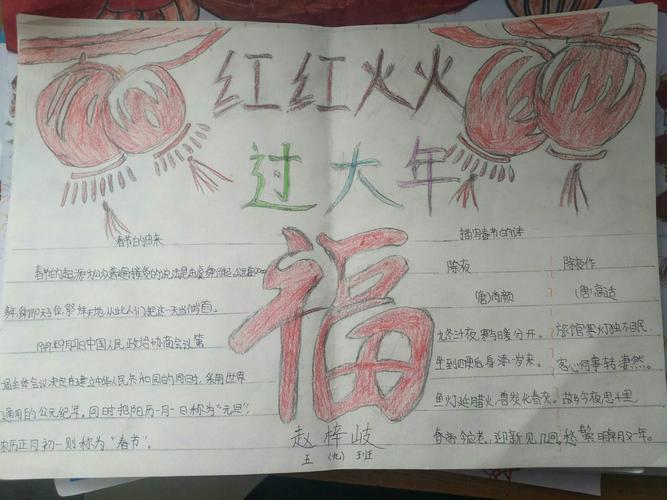 红红火火
过大年
福
春节的由来
春节的起源为公众普遍接受的说法是由虞舜兴起,公元前2000
多年,舜即天子位,祭拜天地,从此人们把这一天当做岁首。
1949年9月27日中国人民政治协商会议第
一届全体会议决定在建立中华人民共和国的同时,采用世界
通用的公元纪年。同时把阳历一月一日称为“元旦”
农历正月初一则称为“春节”。
描写春节的诗
除夜
(唐)尚颜
九冬三十夜,寒与暖分开。
坐到四更后,身添一岁来。
鱼灯延腊火,兽炭化春灰。
青帝今应老,迎新见几回。
除夜作
(唐)高适
旅馆寒灯独不眠,
客心何事转凄然。
故乡今夜思千里,
愁鬓明朝又一年。
赵梓岐
五(九)班